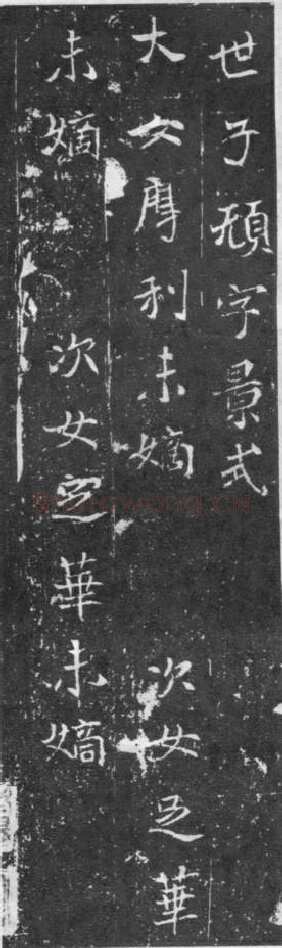 世子字景式
大女利未嫡 次女足華
未嫡 次女定華未嫡